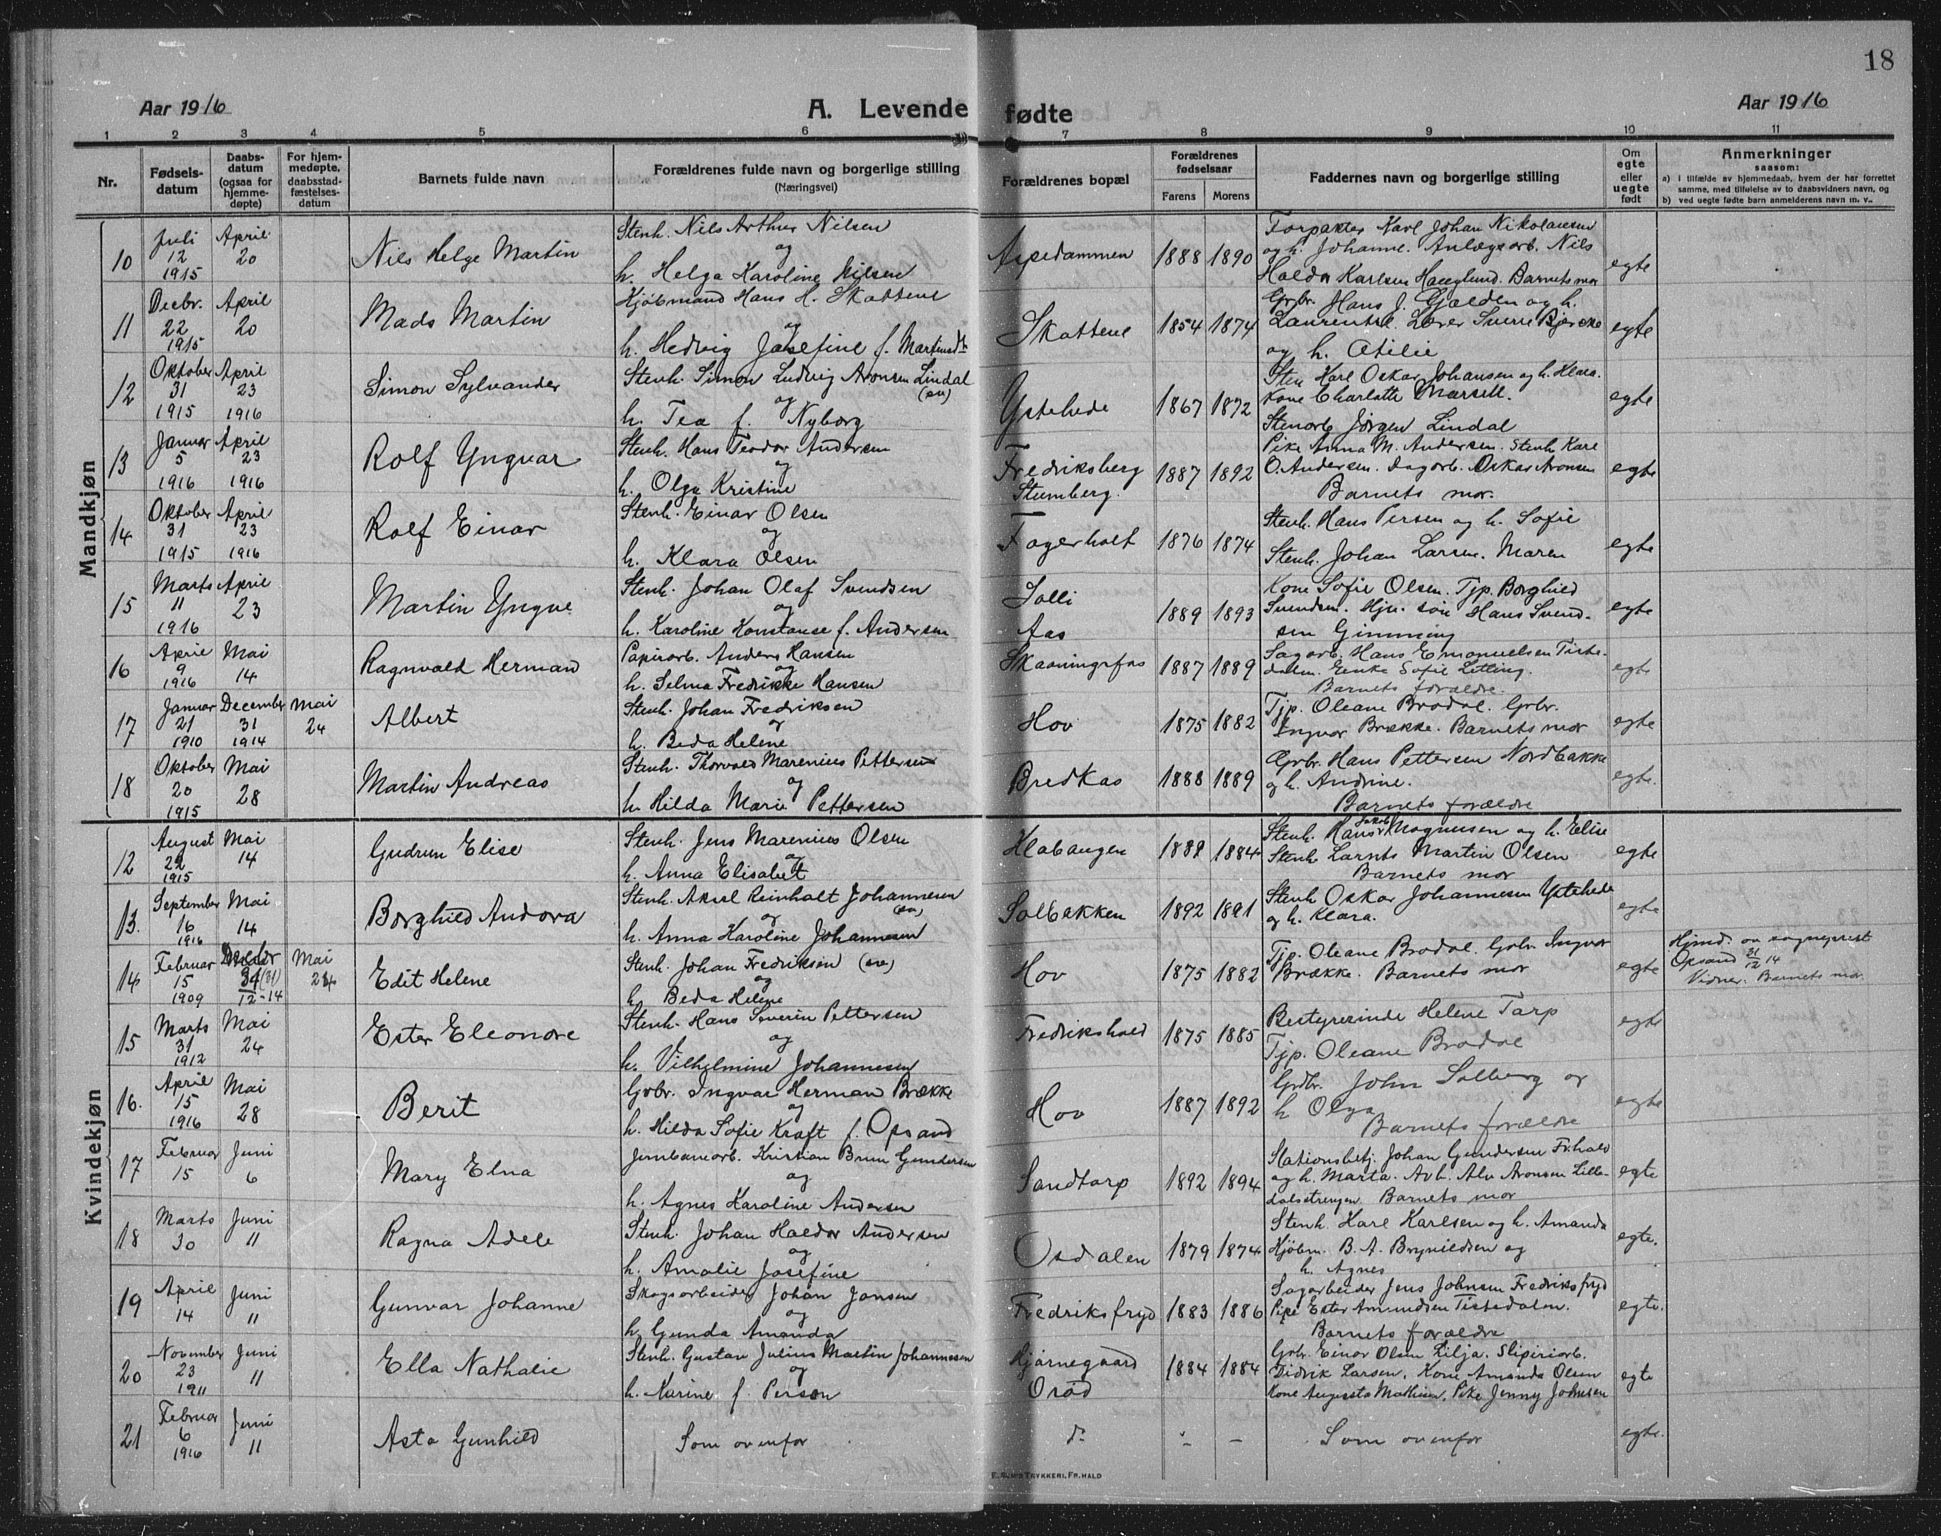 18
Aar 1916
A. Levende fødte
Aar 1916
1 2 3 4 5 6 7 8 9 10 11
Nr.
Fødsels-
datum
Daabs-
datum
(ogsaa for
hjemme-
døpte)
For hjem-
medøpte,
daabsstad-
fæstelses-
datum
Barnets fulde navn
Forældrenes fulde navn og borgerlige stilling
(Næringsvei)
Forældrenes bopæl
Forældrenes
fødselsaar
Farens Morens
Faddernes navn og borgerlige stilling
Om
egte
eller
uegte
født
Anmerkninger
saasom:
a) I tilfælde av hjemmedaab, hvem der har forrettet
samme, med tilføielse av to daabsvidners navn, og
b) ved uegte fødte barn anmelderens navn m. v.
Mandkjøn
10
Juli
12
1915
April
20
Nils Helge Martin
Stenh. Nils Arthur Nilsen
og
h. Helga Karoline Nilsen
Aspedammen
1888 1890
Forpakter Karl Johan Nikolaisen
og h. Johanne. Anlægsarb. Nils
Haldor Karlsen Hauglund. Barnets mor
egte
11
Decbr.
22
1915
April
20
Mads Martin
Kjøbmand Hans H. Skattene
og
h. Hedvig Josefine f. Martinsdtr
Skattene
1854 1874
Grbr. Hans J. Gjølden og h.
Laurentse. Lærer Sverre Bjercke
og h. Otilie
egte
12
Oktober
31
1915
April
23
1916
Simon Sylvander
Stenh. Simon Ludvig Aronsen Lindal
(sv)
og
h. Tea f. Nyborg
Ystehede
1867 1872
Sten Karl Oskar Johansen og h. Klara.
Kone Charlotte
Stenarb Jørgen Lindal
egte
13
Januar
5
1916
April
23
1916
Rolf Yngvar
Stenh. Hans Teodor Andersen
og
h. Olga Kristine
Fredriksberg
Stumberg.
1887 1892
Pike Anna M. Andersen. Stenh Karl
O. Andersen. Dagarb. Oskar Aronsen
Barnets mor.
egte
14
Oktober
31
1915
April
23
1916
Rolf Einar
Stenh. Einar Olsen
og
h. Klara Olsen
Fagerholt
1876 1874
Stenh. Hans Persen og h. Sofie
Stenh. Johan Larsen. Maren
egte
15
Marts
11
1916
April
23
Martin Yngve
Stenh. Johan Olaf Svendsen
og
h. Karoline Konstanse f. Andersen
Jolli
Aas
1889 1893
Kone Sofie Olsen. Tjp. Borghild
Svendsen. Hjv. søn Hans Svend-
sen Gimming
egte
16
April
9
1916
Mai
14
Ragnvald Herman
Papirarb. Anders Hansen
og
h. Selma Fredrikke Hansen
Skaaningsfos
1887 1889
Sagarb. Hans Emanuelsen Tiste-
dalen. Enke Sofie Litling.
Barnets forældre.
egte
17
Januar
21
1910
December
31
1914
Mai
24
Albert
Stenh. Johan Fredriksen
og
h. Beda Helene
Hov
1875 1882
Tjp. Oleane Brødal. Grbr.
Ingvar Brække. Barnets mor
egte
18
Oktober
20
1915
Mai
28
Martin Andreas
Stenh. Thorvald Marenius Pettersen
og
h. Hilda Marie Pettersen
Bredkas
1888 1889
Grbr. Hans Pettersen Nordbakke
og h. Andrine.
Barnets forældre
egte.
Kvindekjøn
12
August
22
1915
Mai
14
Gudrun Elise
Stenh. Jens Marenius Olsen
og
h. Anna Elisabet
Klabaugen
1888 1884
Stenh. Hans Jakob Magnusen og h. Elise
Stenh Larnts Martin Olsen
Barnets mor
egte
13.
September
16
1916
Mai
14
Borghild Andora
Stenh. Aksel Reinholt Johannesen
(sv)
og
h. Anna Karoline Johannesen
Solbakken
1892 1891
Stenh Oskar Johannesen Ystehede
og h. Klara.
egte
14
Februar
15
1909
Decbr
31 (31)
12-14
Mai
24
Edit Helene
Stenh. Johan Fredriksen (sv)
og
h Beda Helene
Hov
1875 1882
Tjp. Oleane Brødal. Grbr. Ingvar
Brække. Barnets mor
egte
Hjmd. av sogneprest
Opsand 31/12 14
Vidner. Barnets mor.
15
Marts
31
1912
Mai
24
Ester Eleonore
Stenh. Hans Severin Pettersen
og
h. Vilhelmine Johannesen
Fredrikshald
1875 1885
Bestyrerinde Helene Tarp
Tjp. Oleane Brødal
egte
16.
April
15
1916
Mai
28
Berit
Grbr. Ingvar Herman Brække
og
h. Hilda Sofie Kraft f. Opsand
Hov
1887 1892
Grdbr. John Solberg og
h Olga
Barnets forældre
egte
17
Februar
15
Juni
6
Mary Elna
Jernbanearb. Kristian Brun Gundersen
og
h. Agnes Karoline Andersen
Sandtorp
1892 1894
Stationsbetj. Johan Gundersen Fr.hald
og h. Marta. Arb. Alv Aronsen Lille-
dalsstrengen Barnets mor
egte
18
Marts
30
Juni
"
Ragna Adele
Stenh. Johan Haldor Andersen
og
h. Amalie Josefine
Osdalen
1879 1874
Stenh. Karl Karlsen og h. Amanda
Kjøbm. B. A. Brynildsen og
h. Agnes
egte.
19
April
14
Juni
"
Gunvar Johanne
Skogsarbeider Johan Jansen
og
h. Gunda Amanda
Fredriksfryd
1883 1886
Sagarbeider Jens Johnsen Fredriksfryd
Pike Ester Amundsen Tistedalen.
Barnets forældre
egte.
20
November
23
1911
Juni
"
Ella Nathalie
Stenh. Gustav Julius Martin Johannesen
og
h. Karine f. Person
Kjørnegaard
Orød
1884 1884
Grbr. Einar Olsen Lilja. Sliperiarb.
Didrik Larsen. Kone Amanda Olsen
Kone Augusta Mathisen. Pike Jenny Johnsen
egte
21
Februar
6
1916
Juni
"
Asta Gunhild
Som ovenfor
d.
" –
Som ovenfor
egte.
E. SEM'S TRYKKERI, FR.HALD